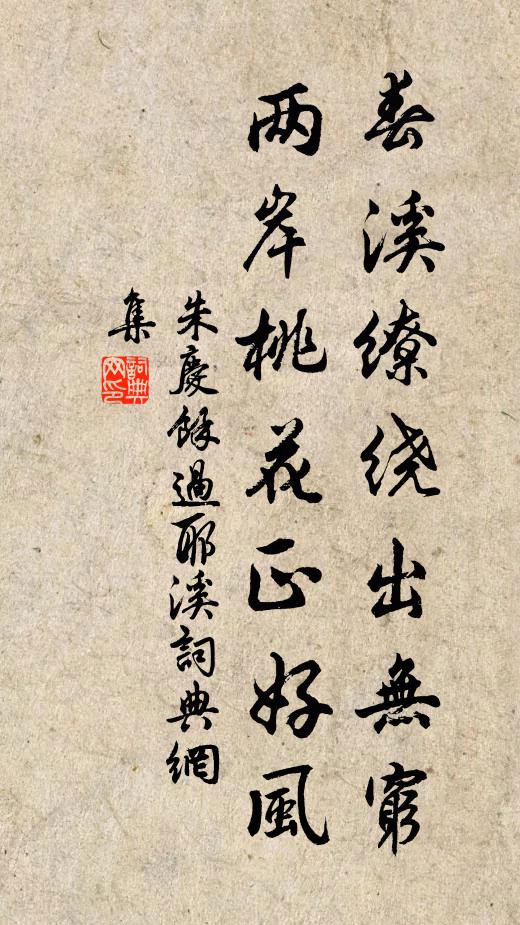 春溪缭绕出無窮
两岸桃花正好風
朱慶餘過耶溪詞典網
集
詞典网印